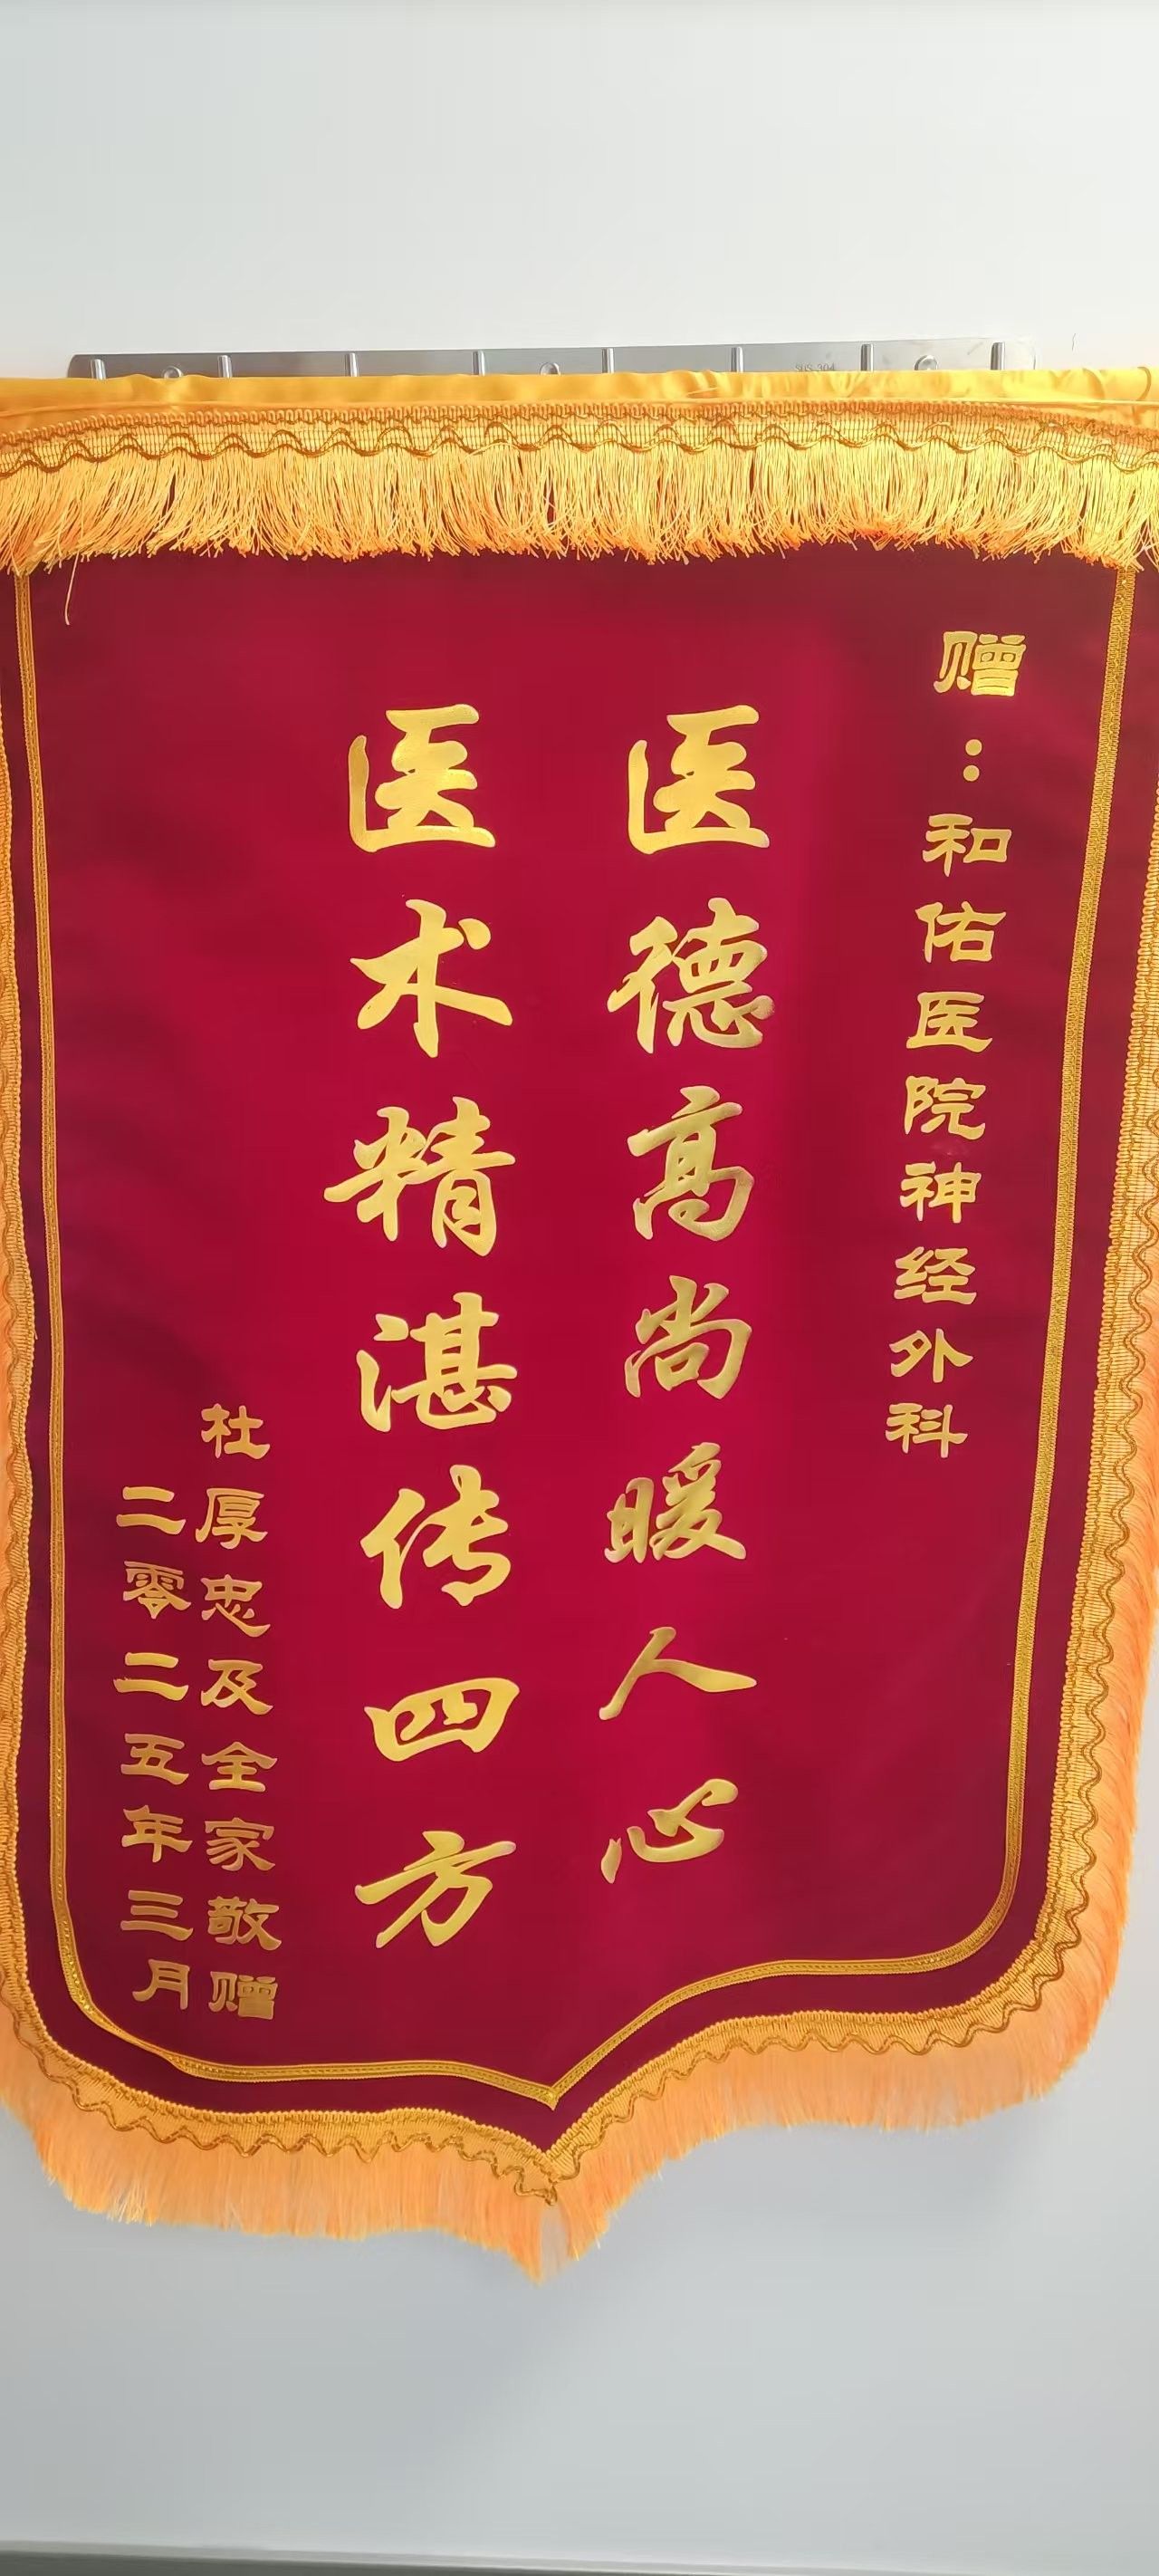 赠：和佑医院神经外科
医德高尚暖人心
医术精湛传四方
杜厚忠及全家敬赠
二零二五年三月
SUS 304